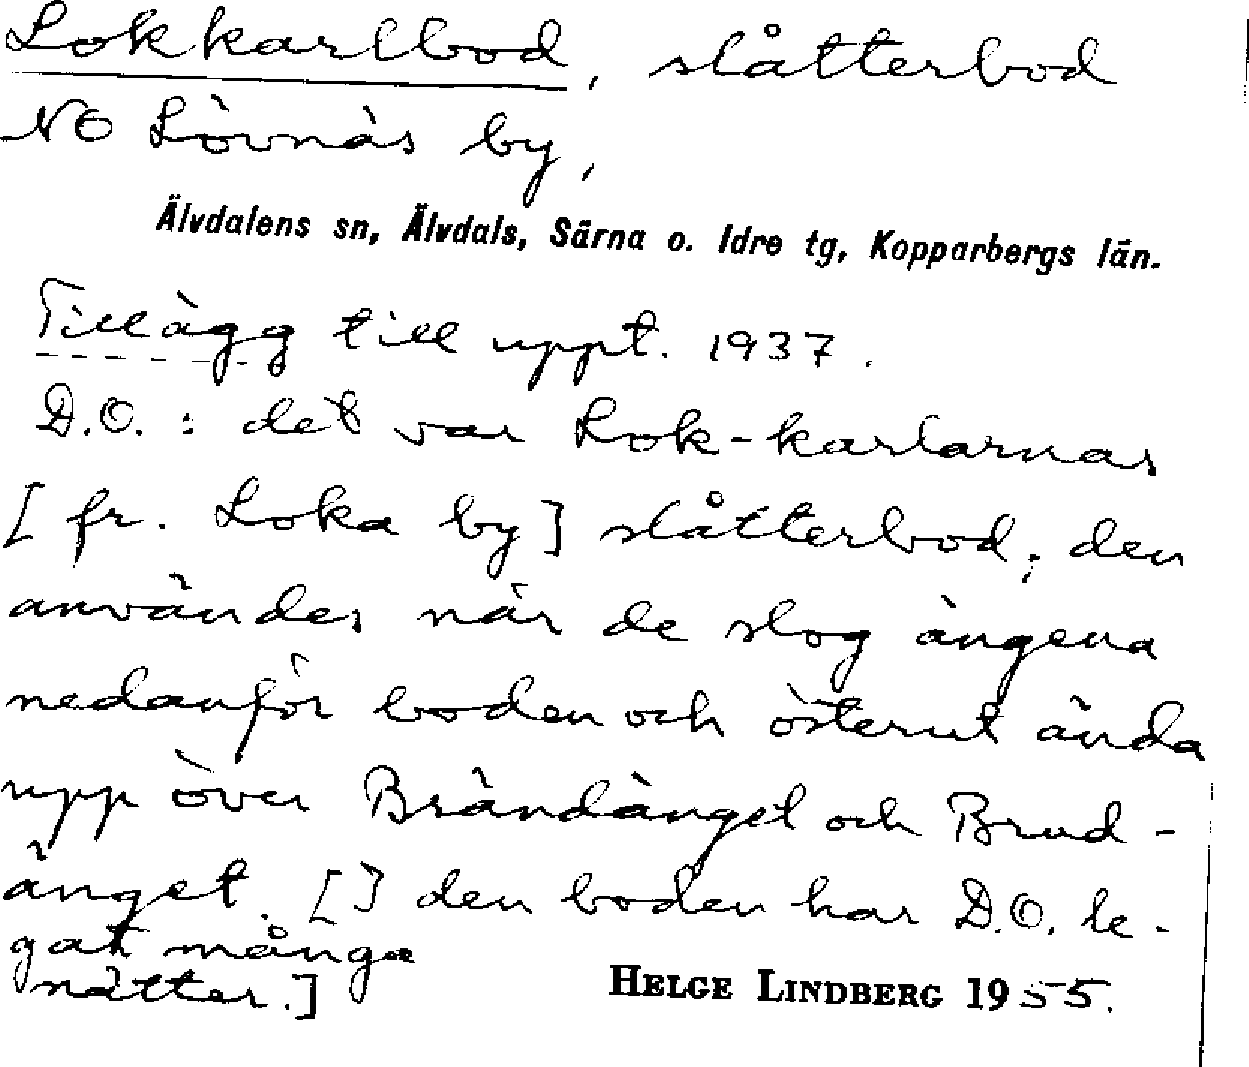 Lokkarlbod, slåtterbod
NO Lövnäs by,
Älvdalens sn, Älvdals, Särna o. Idre tg, Kopparbergs län.
Tillägg till uppt. 1937.
D.O.: det var Lok-karlarnas
[fr. Loka by] slåtterbod; den
användes när de slog ängena
nedanför boden och österut ända
upp över Brändänget och Brud-
änget. [I den boden har D.O. le-
gat många
nätter.]
HELGE LINDBERG 1955.